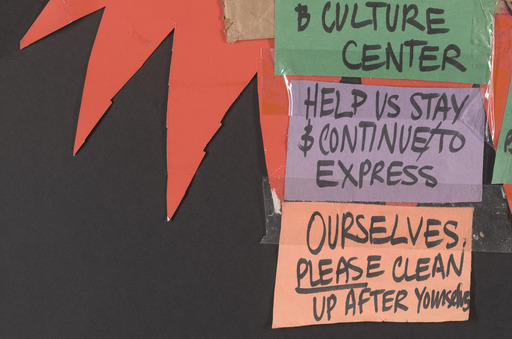 & CULTURE
CENTER
HELP US STAY
& CONTINUE TO
EXPRESS
OURSELVES.
PLEASE CLEAN
UP AFTER YOURSELVES